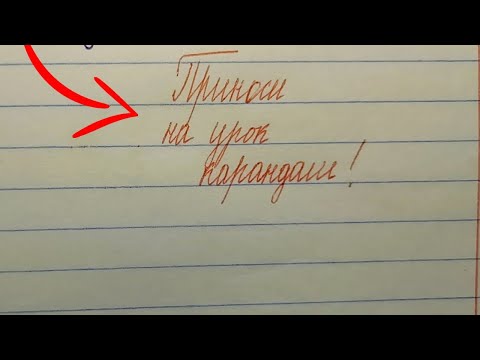 Приноси
на урок
карандаш!